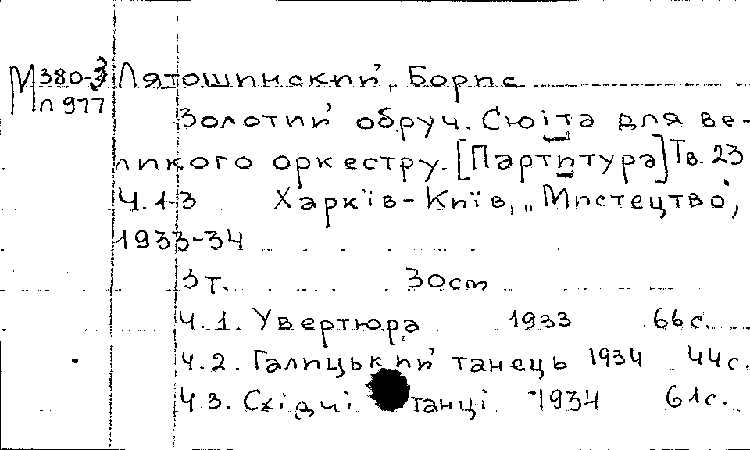 М 380-3 Лятошинский, Борис
Л 977
Золотий обруч. Сюїта для ве-
ликого оркестру. [Партитура] Тв. 23
Ч. 1-3 Харкїв-Київ, „Мистецтво",
1933-34
3 т. 30 cm
Ч. 1. Увертюра 1933 66 с.
Ч. 2. Галицький танець 1934 44 с.
Ч. 3. Східні танці 1934 61 с.